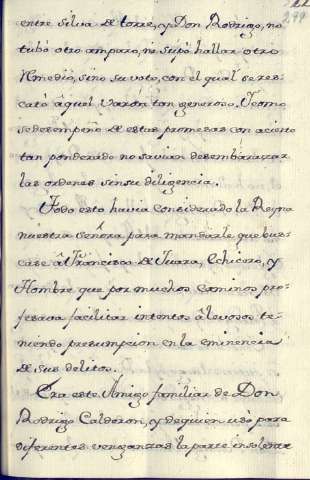 299
entre silva de torres, y Don Rodrigo, no
tubó otro amparo, ni supo hallar otro
Remedio, sino su voto, con el qual se res-
cató àquel Varon tan generoso. Y como
se desempeñó de estas promesas con acierto
tan ponderado no savian desembarazar
las ordenes sin su diligencia.
Todo esto havia considerado la Reyna
nuestra Señora para mandarle que bus-
case â Francisco de Juara, Echicero, y
Hombre que por muchos caminos pro-
fesava facilitar intentos âlevosos, te-
niendo presumpcion en la eminencia
de sus delitos.
Era este Amigo familiar de Don
Rodrigo Calderon, y de quien usó para
diferentes venganzas la parte insolente